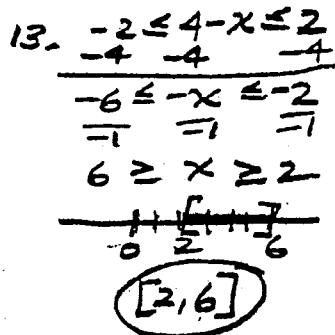 13. -2 ≤ 4-x ≤ 2
-4 -4 -4
-6 ≤ -x ≤ -2
-1 -1 -1
6 ≥ x ≥ 2
0 2 6
[2,6]